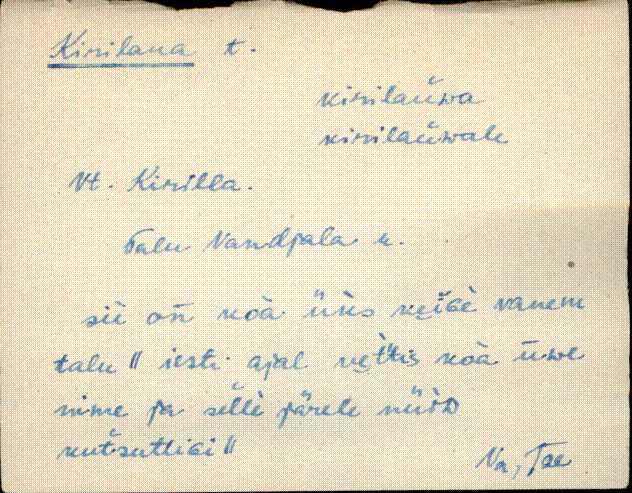 Kirilaua t.
kirilaŭwa
kirilaŭwale
Vt. Kirilla.
Talu Vandjala k.
sii on koà üks keige vanem
talu || iesti ajal vettis koà üwe
nime ja selle järele nüid
kutsuttigi ||
Va, Tae